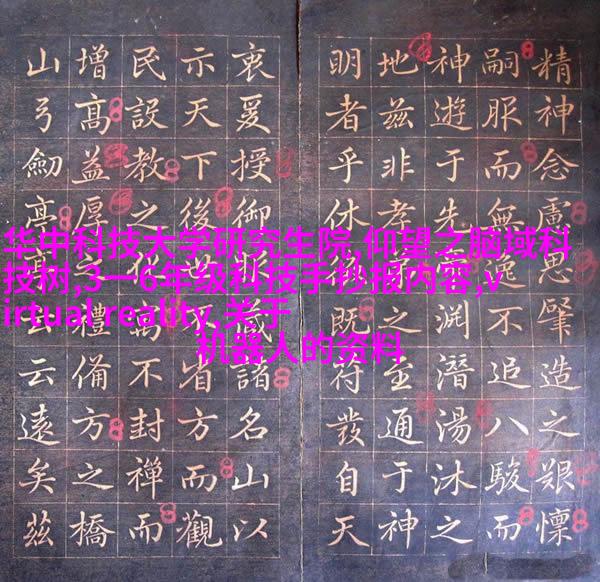 华中科技大学研究生院,仰望之脑域科
技树,3一6年级科技手抄报内容,v
irtual reality,关于
机器人的资料
精神念慮思肇造之艱懍
嗣服而無逸不追八駿而
神遊于先淵潛湯沐之
地茲非孝之至通于神
明者乎休既符發自天
衷爰授御藏諸名山以
示天下後世省方而觀
民設教之萬不封禪而
增高益厚之禮備方之橋
山弓劒亭亭云云遠矣茲